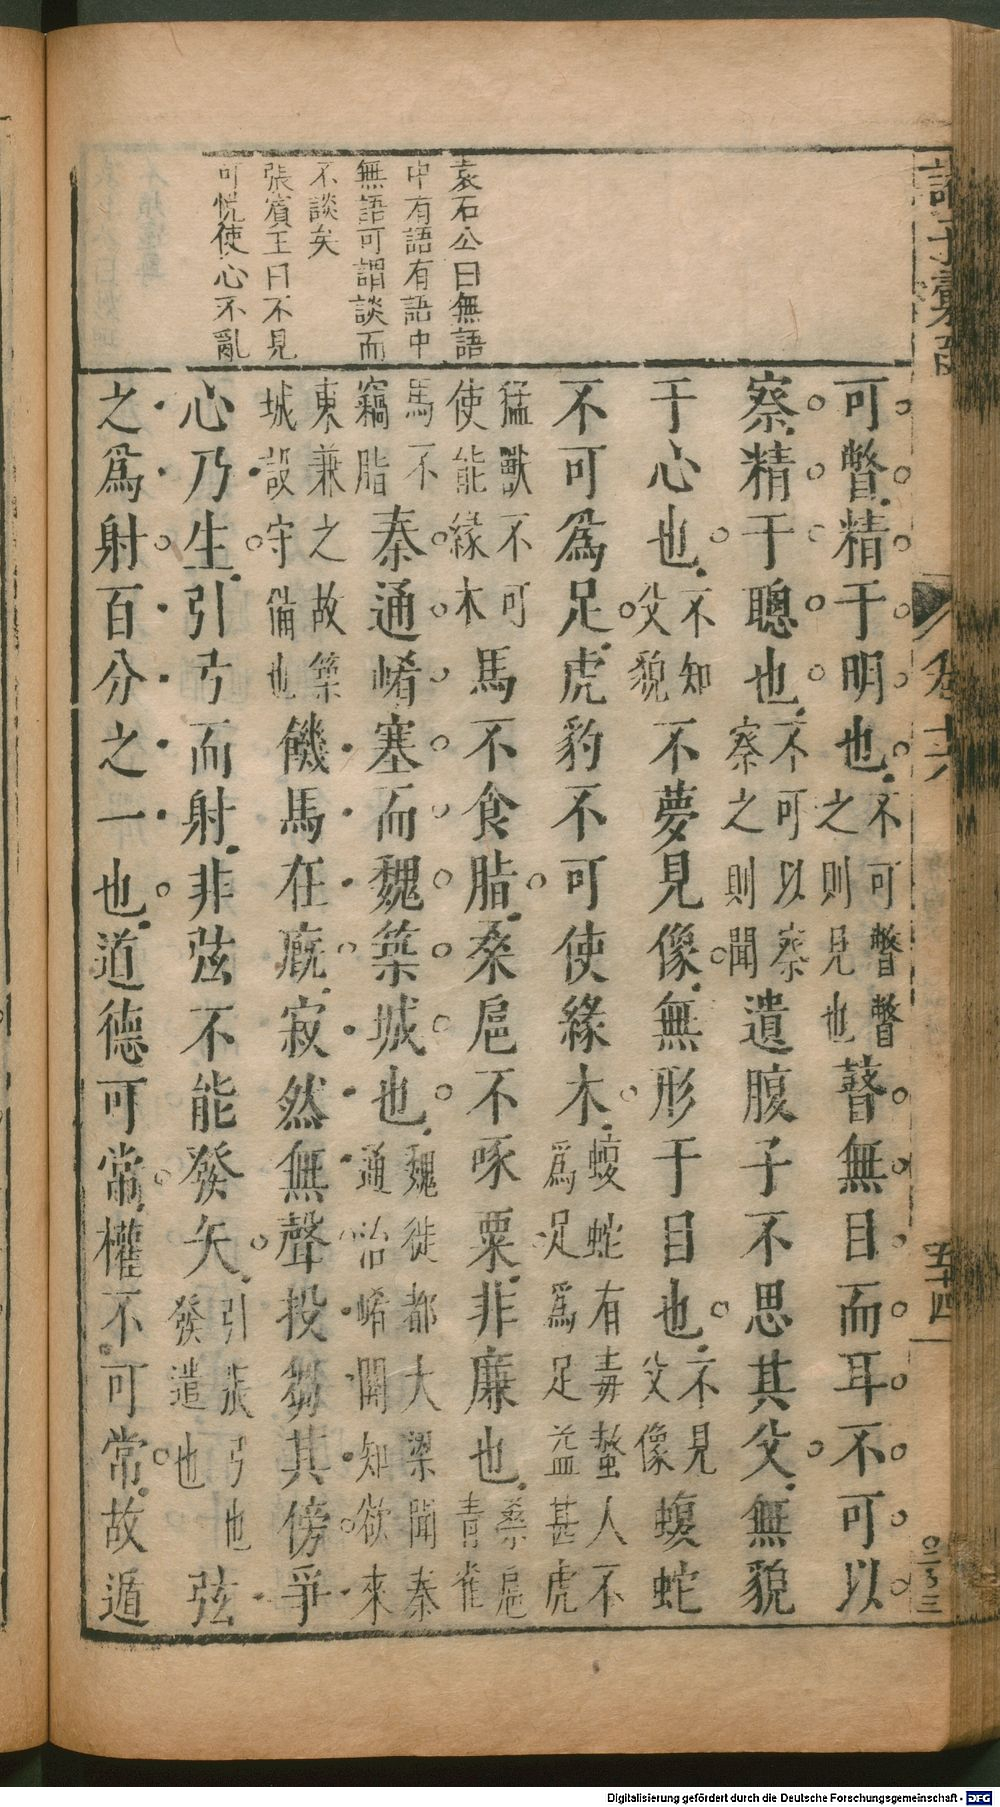 袁石公曰無語
中有語有語中
無語可謂談而
不談矣
張賓王曰不見
可悅使心不亂
可瞥精于明也不可瞥瞥之則見也瞽無目而耳不可以
察精于聰也不可以察察之則聞遺腹子不思其父無貌
于心也不知父貌不夢見像無形于目也不見父像蝮蛇
不可爲足虎豹不可使緣木蝮蛇有毒螫人不爲足爲足益甚虎
猛獸不可使能緣木馬不食脂桑扈不啄粟非廉也桑扈青雀
馬不竊脂秦通崤塞而魏築城也魏徙都大梁聞秦通治崤關知欲來
東兼之故築城設守備也饑馬在廐寂然無聲投芻其傍爭
心乃生引弓而射非弦不能發矢引張弓也發遣也弦
之爲射百分之一也道德可常權不可常故遁
卷十六
五十四
Digitalisierung gefördert durch die Deutsche Forschungsgemeinschaft - DFG